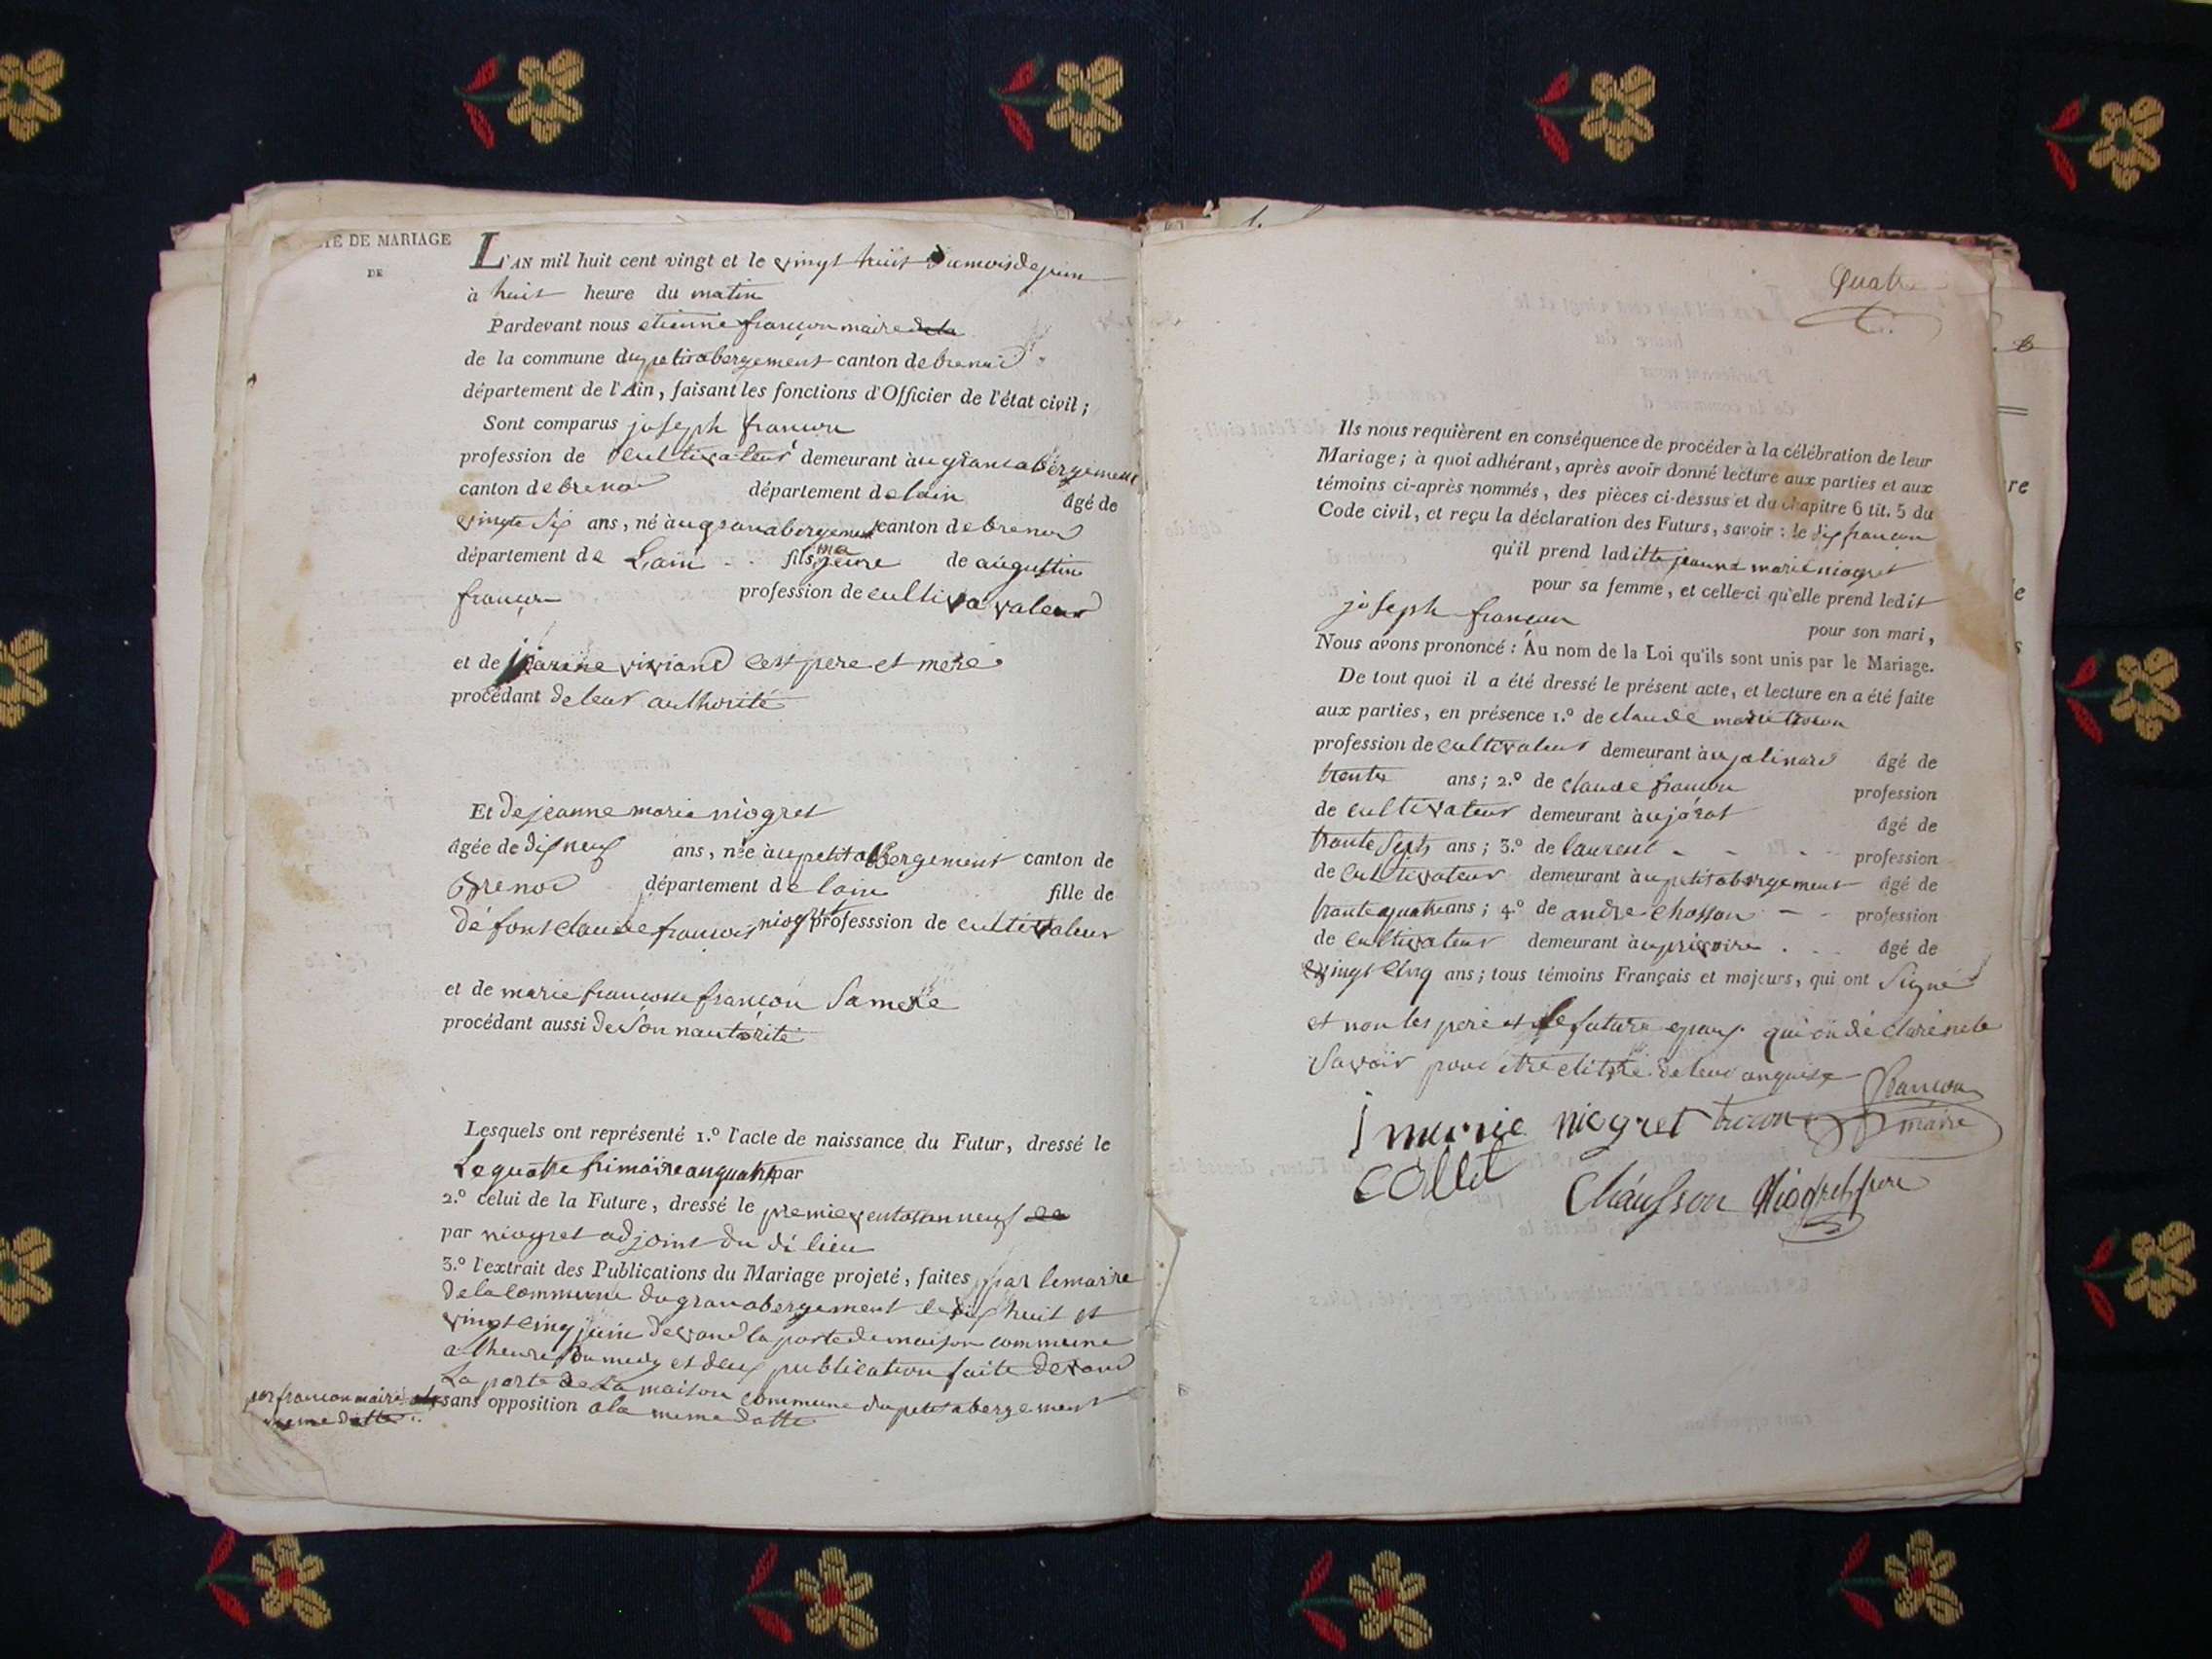 TE DE MARIAGE
DE
L'AN mil huit cent vingt et le vingt huit du mois de juin
à huit heure du matin
Pardevant nous etienne françon maire de la
de la commune du petit abergement canton de brenod
département de l'Ain, faisant les fonctions d'Officier de l'état civil;
Sont comparus joseph françon
profession de cultivateur demeurant au grand abergement
canton de brenod département de lain âgé de
vingte six ans, né au grand abergement canton de brenod
département de Lain fils majeure de augustin
françon profession de cultivavateur
et de viviand cest pere et mere
procédant de leur authorité
Et de jeanne marie niogret
âgée de dix neuf ans, née à au petit abergement canton de
Brenod département de lain fille de
défont claude francois niogret professsion de cultivateur
et de marie francoise françon sa mere
procédant aussi de son nautorité
Lesquels ont représenté 1.º l'acte de naissance du Futur, dressé le
Le quatre frimaire an quatre par
2.º celui de la Future, dressé le premier ventose an neuf
par niogret adjoint du di lieu
3.º l'extrait des Publications du Mariage projeté, faites par le maire
de la commune du grand abergement le dix huit et
vingt cinq juin devand la porte de maison commune
a lheure du medy et deux publication faite devand
La porte de la maison commune du petit abergement
par françon maire
sans opposition a la meme datte
meme datte
Quatre
Ils nous requièrent en conséquence de procéder à la célébration de leur
Mariage; à quoi adhérant, après avoir donné lecture aux parties et aux
témoins ci-après nommés, des pièces ci-dessus et du chapitre 6 tit. 5 du
Code civil, et reçu la déclaration des Futurs, savoir: le françon
qu'il prend laditte jeanne marie niogret
pour sa femme, et celle-ci qu'elle prend ledit
joseph françon pour son mari,
Nous avons prononcé: Au nom de la Loi qu'ils sont unis par le Mariage.
De tout quoi il a été dressé le présent acte, et lecture en a été faite
aux parties, en présence 1.º de claude marie trocon
profession de cultivateur demeurant à au jalinard âgé de
trente ans; 2.º de claude françon profession
de cultivateur demeurant à au jorat âgé de
trante sept ans; 3.º de laurent profession
de cultivateur demeurant à au petit abergement âgé de
trante quatre ans; 4.º de andre chosson profession
de cultivateur demeurant à au âgé de
vingt cinq ans; tous témoins Français et majeurs, qui ont signé
et non les pere et le future epoux qui on déclaré ne le
savoir pour
françon
maire
j marie niogret trocon
collet
Chausson Niogret